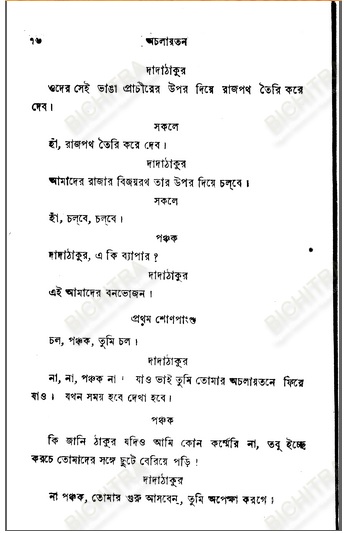 ৭৬ অচলায়তন
দাদাঠাকুর
ওদের সেই ভাঙা প্রাচীরের উপর দিয়ে রাজপথ তৈরি করে
দেব।
সকলে
হাঁ, রাজপথ তৈরি করে দেব।
দাদাঠাকুর
আমাদের রাজার বিজয়রথ তার উপর দিয়ে চল্‌বে।
সকলে
হাঁ, চল্‌বে, চল্‌বে।
পঞ্চক
দাদাঠাকুর, এ কি ব্যাপার?
দাদাঠাকুর
এই আমাদের বনভোজন।
প্রথম শোণপাংশু
চল, পঞ্চক, তুমি চল।
দাদাঠাকুর
না, না, পঞ্চক না। যাও ভাই তুমি তোমার অচলায়তনে ফিরে
যাও। যখন সময় হবে দেখা হবে।
পঞ্চক
কি জানি ঠাকুর যদিও আমি কোন কর্ম্মেরি না, তবু ইচ্ছে
করচে তোমাদের সঙ্গে ছুটে বেরিয়ে পড়ি!
দাদাঠাকুর
না পঞ্চক, তোমার গুরু আসবেন, তুমি অপেক্ষা করগে।
BICHITRA
BICHITRA
BICHITRA
BICHITRA
BICHITRA
BICHITRA